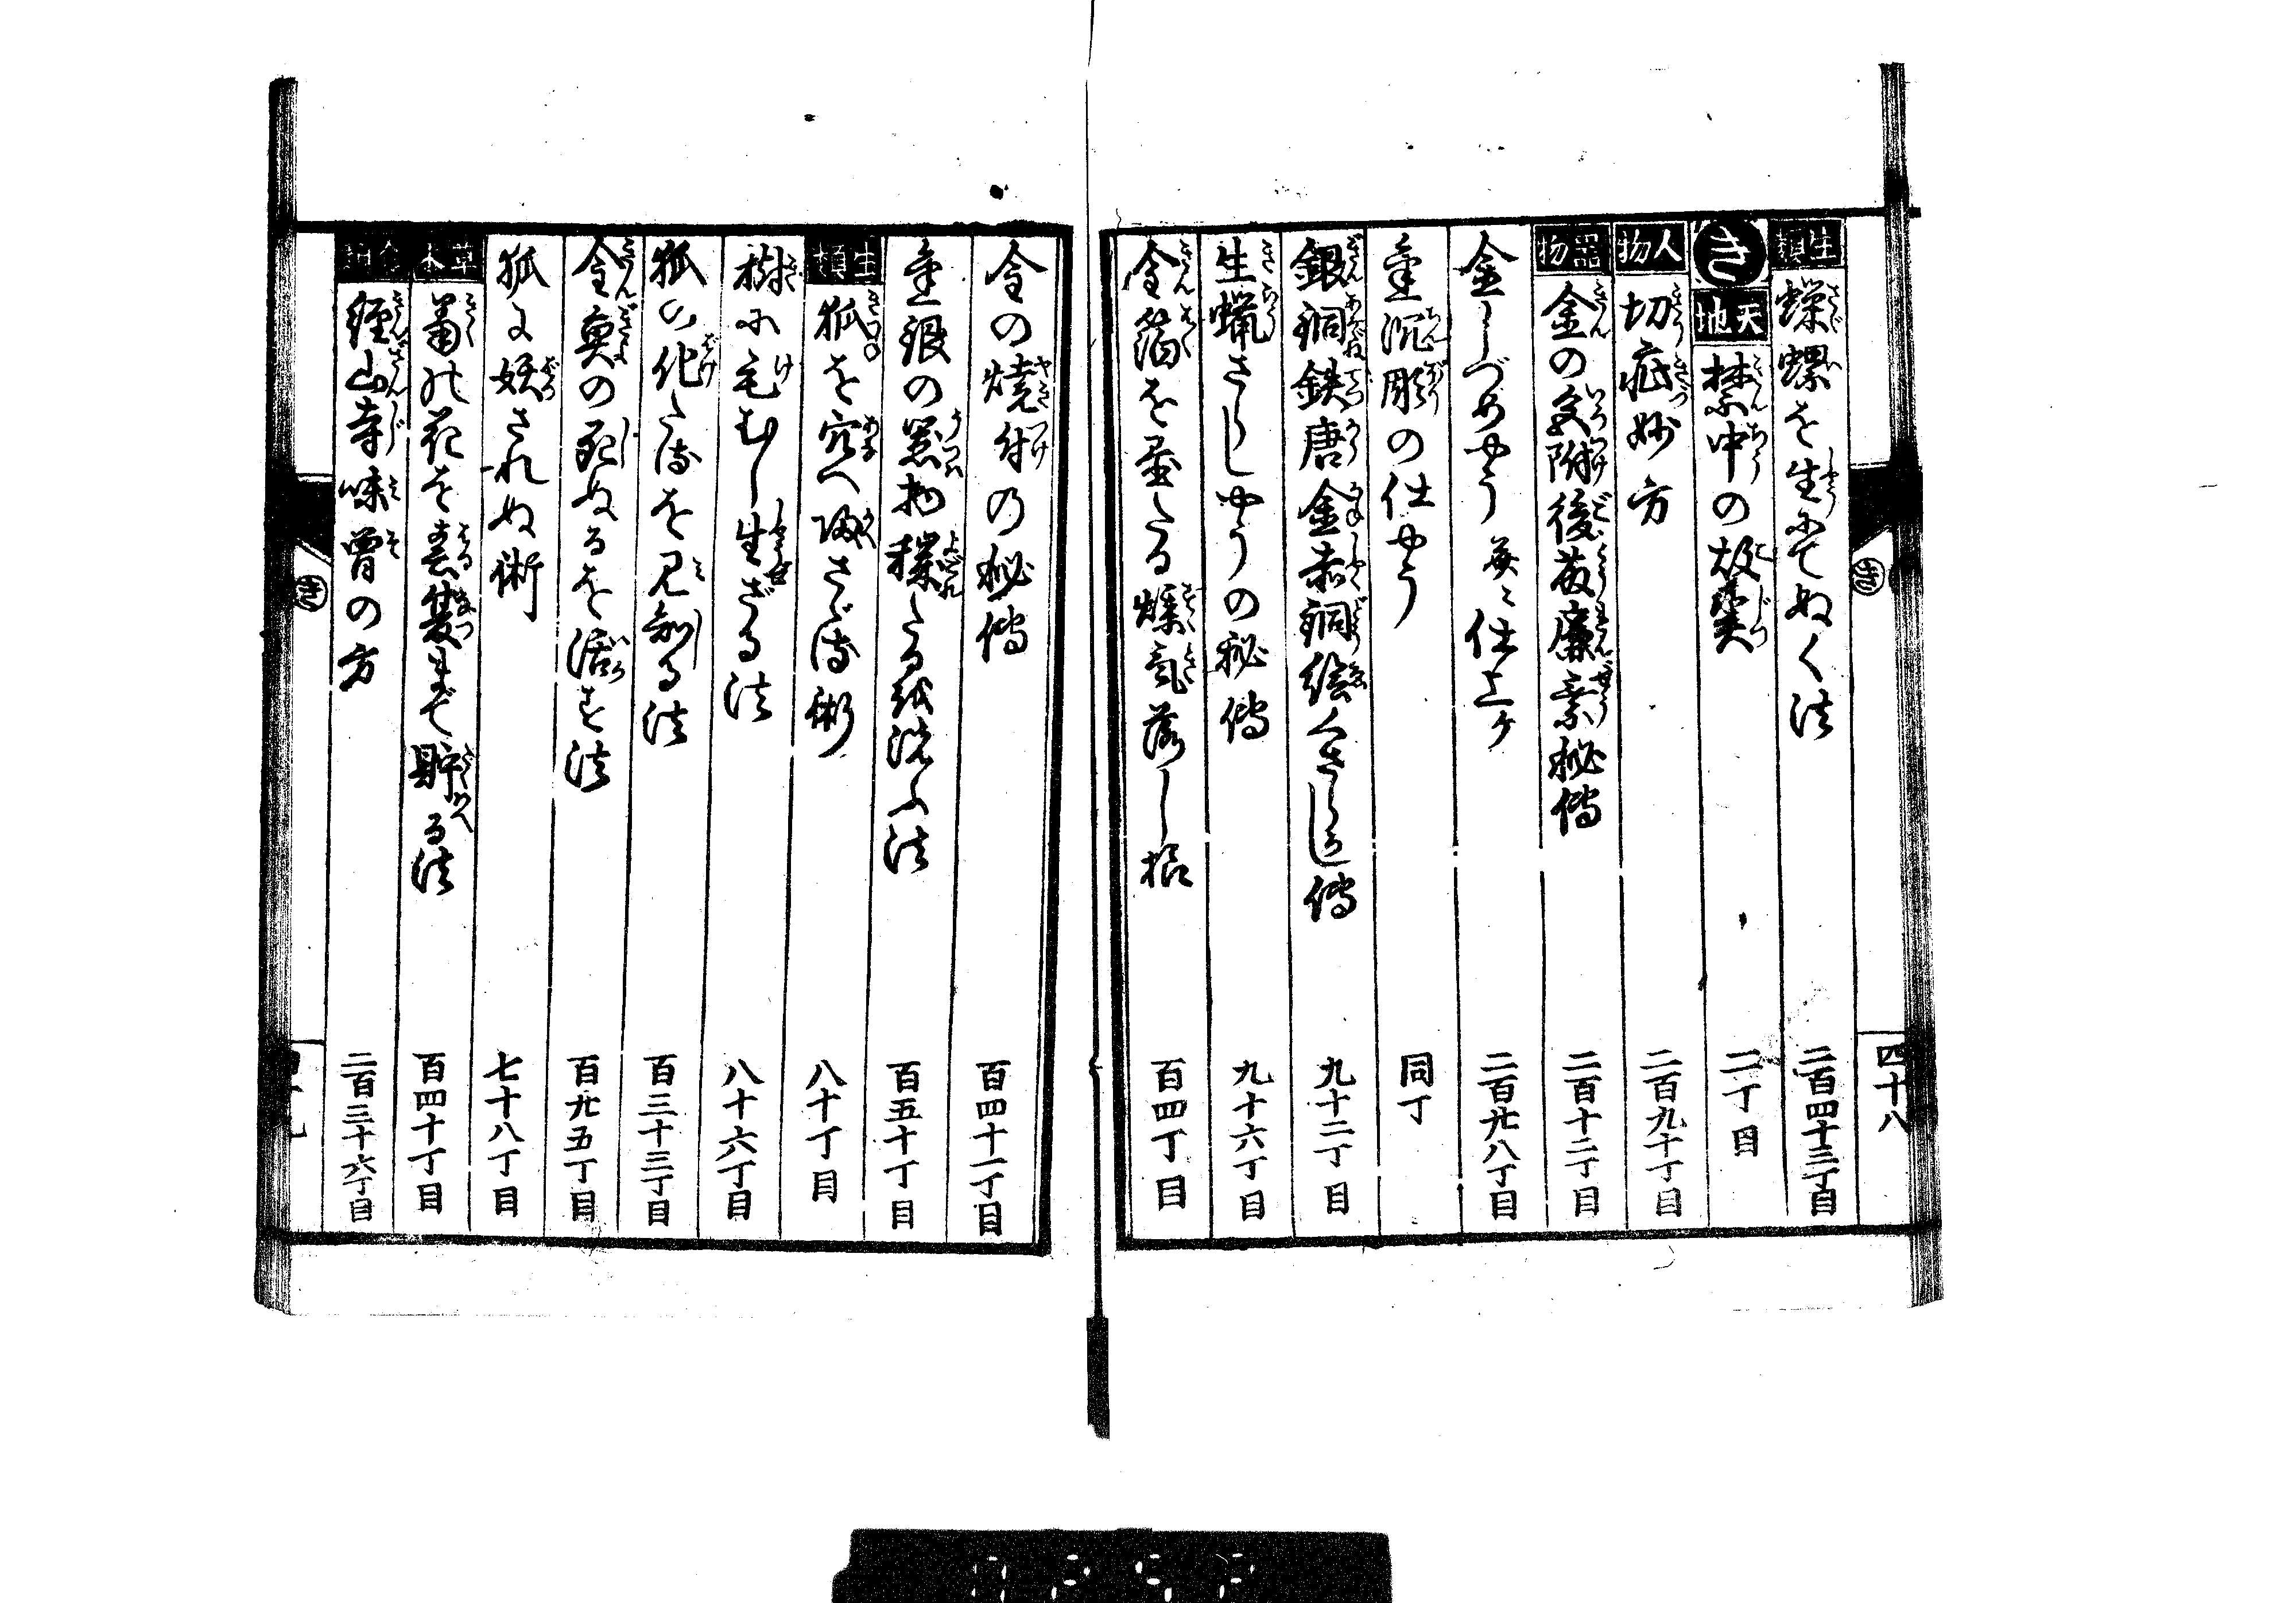 四十八
生類 蠑螺を生にてぬく法 二百四十三丁目
き
天地 禁中の故実 二丁目
人物 切疵妙方 二百九十丁目
器物 金の色附後藤廉乗秘傳 二百十二丁目
金しづめやう 并ニ仕上ケ 二百廿八丁目
金沉彫の仕やう 同丁
銀銅鉄唐金赤銅絵くさらし傳 九十二丁目
生蝋さらしやうの秘傳 九十六丁目
金箔を置たる燻気落し様 百四丁目
金の焼付の秘傳 百四十一丁目
金銀の器物穢たるを洗ふ法 百五十丁目
生類 狐を穴へ帰さゞる術 八十丁目
樹に毛むし生ざる法 八十六丁目
狐の化たるを見知る法 百三十三丁目
金魚の死ぬるを活す法 百廿五丁目
狐に妖されぬ術 七十八丁目
草木 菊の花を春夏まで貯る法 百四十丁目
径山寺味噌の方 二百三十六丁目
き